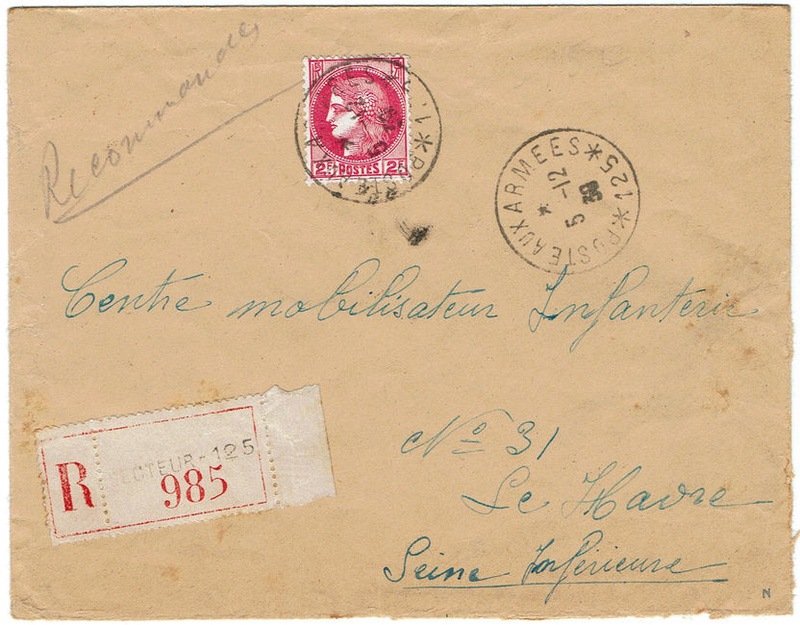 Recommandée
RF
2F POSTES 2F
POSTE AUX ARMEES * 125 *
*
5 -12
39
Centre mobilisateur Infanterie
No 31
Le Havre
Seine Inférieure
R
SECTEUR-125
985
N